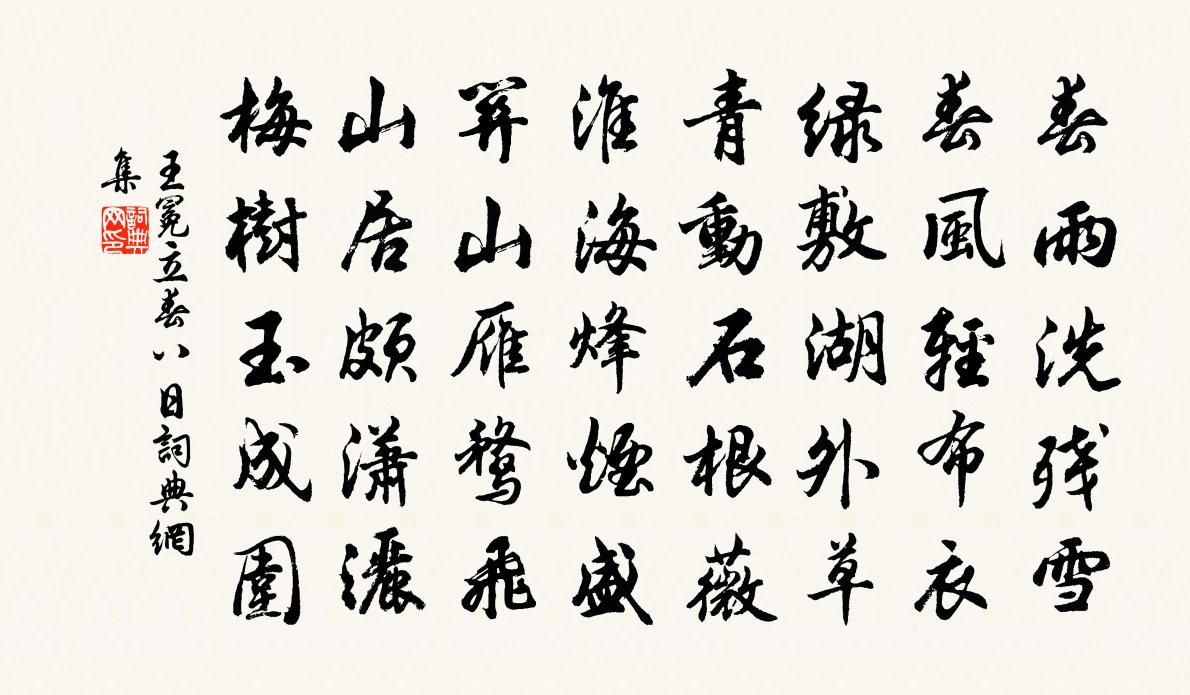 春雨洗残雪
春風輕布衣
绿敷湖外草
青動石根薇
淮海烽煙盛
關山雁鶩飛
山居頗瀟灑
梅樹玉成圍
王冕立春八日詞典網
集
詞典
网印